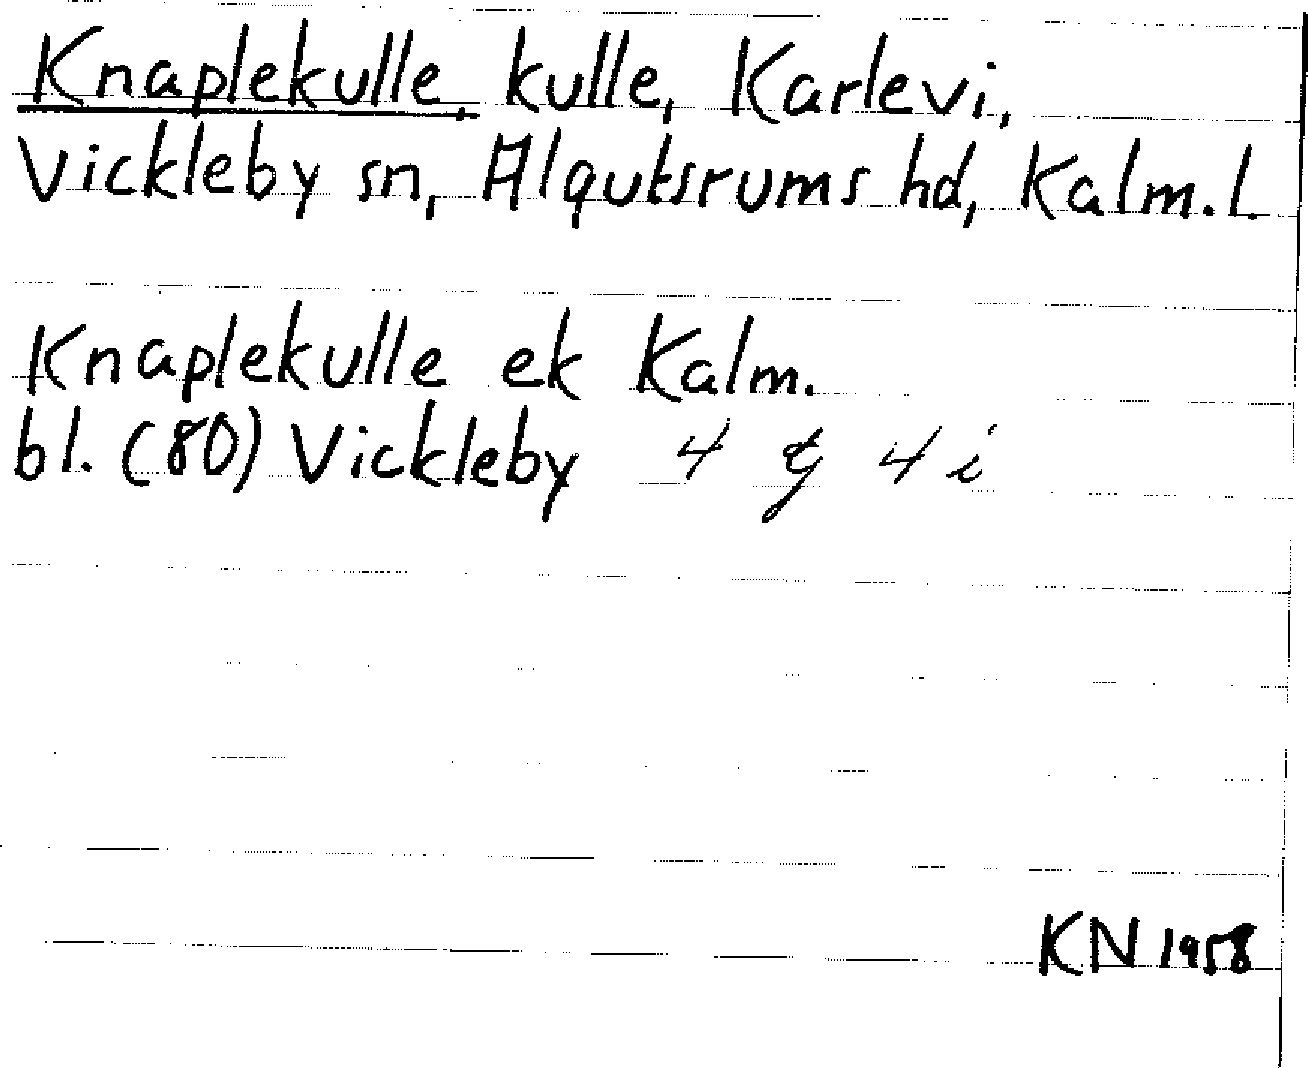 Knaplekulle, kulle, Karlevi,
Vickleby sn, Algutsrums hd, Kalm. l.
Knaplekulle ek Kalm.
bl. (80) Vickleby 4 g 4 i
KN 1958